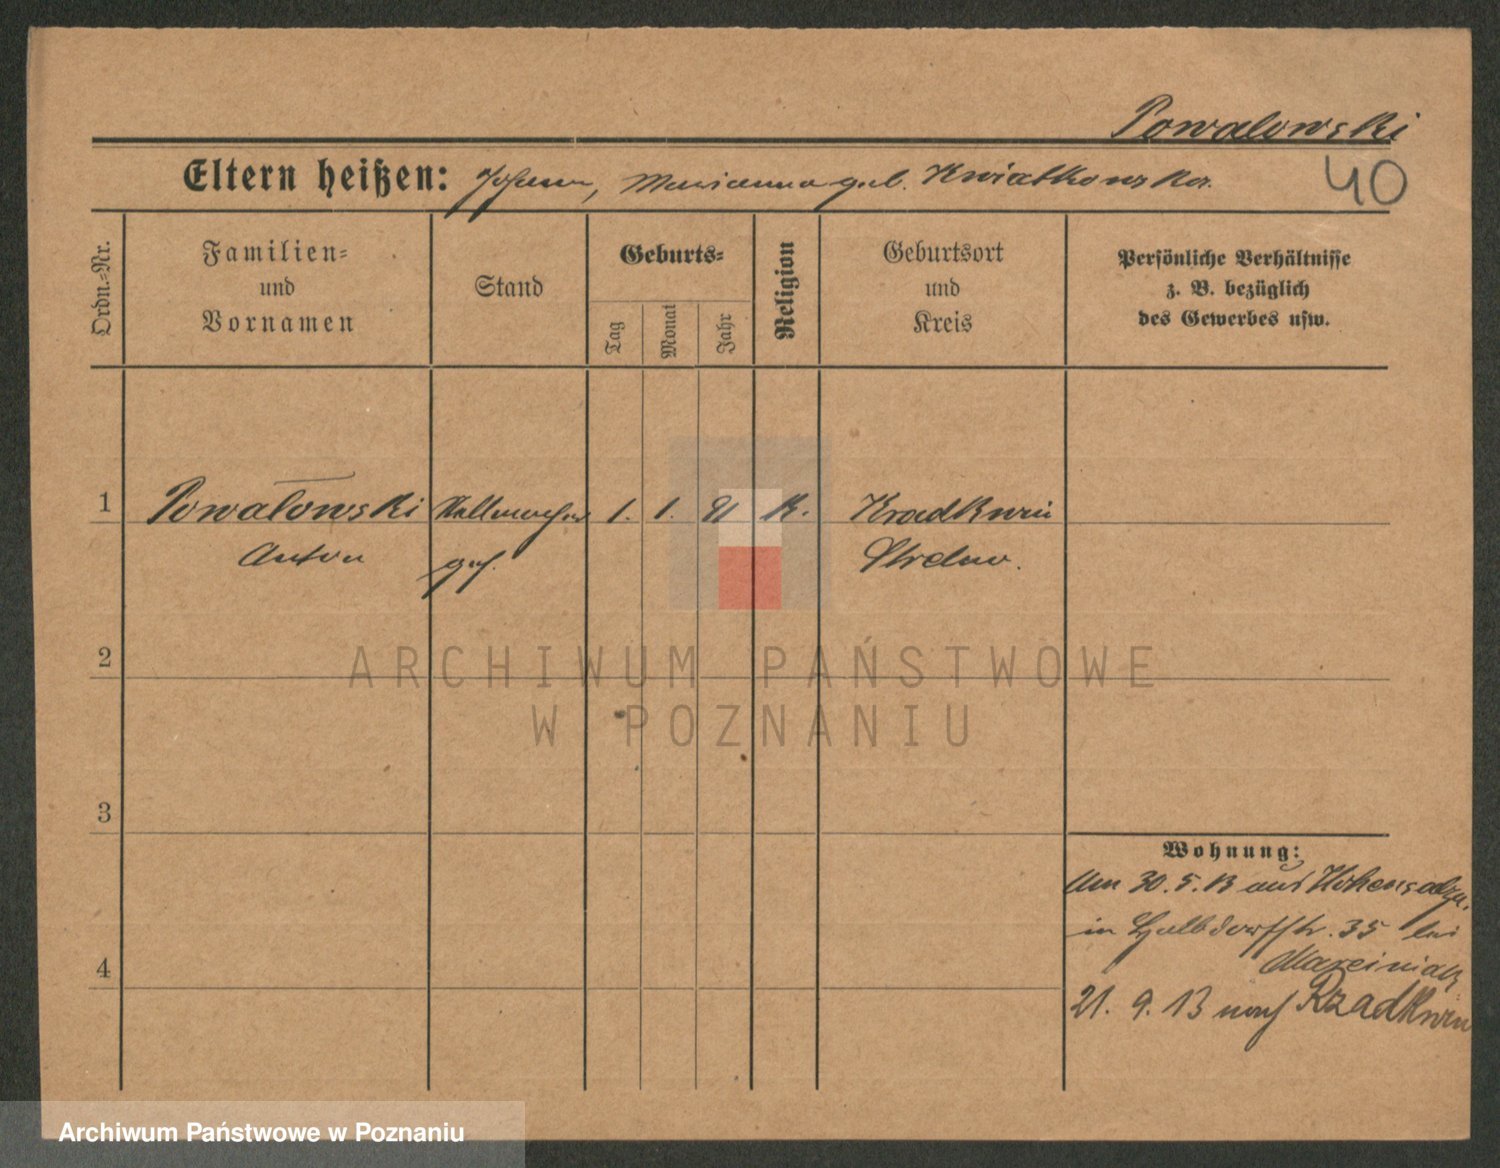 Powalowski
40
Eltern heißen: Johann, Marianna geb. Kwiatkowska.
Ordn.-Nr.
Familien-
und
Vornamen
Stand
Geburts-
Tag
Monat
Jahr
Religion
Geburtsort
und
Kreis
Persönliche Verhältnisse
z. B. bezüglich
des Gewerbes usw.
1
Powałowski
1. 1. 91 k.
Anton
Strelno.
2
ARCHIWUM PAŃSTWOWE
W POZNANIU
3
Wohnung:
Am 30.5.13 aus Hohensalza.
in Halbdorffstr. 35 bei
4
21. 9. 13 nach Rzadkwin
Archiwum Państwowe w Poznaniu